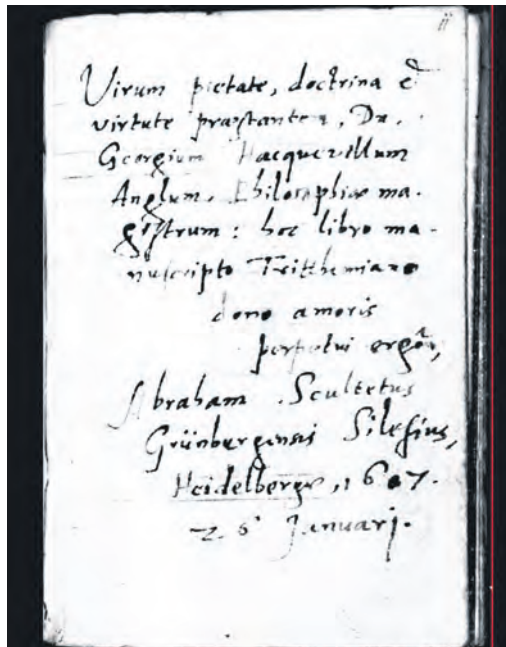 ij
Virum pietate, doctrina &
virtute præstantem, Dn.
Georgium Hacquevillum
Anglum, Philosophiæ ma-
gistrum: hoc libro ma-
nuscripto Tritthemiano
dono amoris
perpetui ergò,
Abraham Scultetus
Grünbergensis Silesius,
Heidelbergæ, 1607.
26 Januarj.